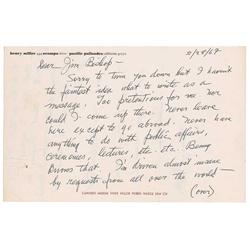 henry miller 444 ocampo drive - pacific palisades california 90272
2/28/69
Dear Jim Bishop -
Sorry to turn you down but I haven't
the faintest idea what to write as a
message. Too pretentious for me. Nor
could I come up there. Never leave
here except to go abroad. Never have
anything to do with public affairs,
ceremonies, lectures, etc. etc. Bores
that. I'm driven almost insane
by requests from all over the world —
(over)